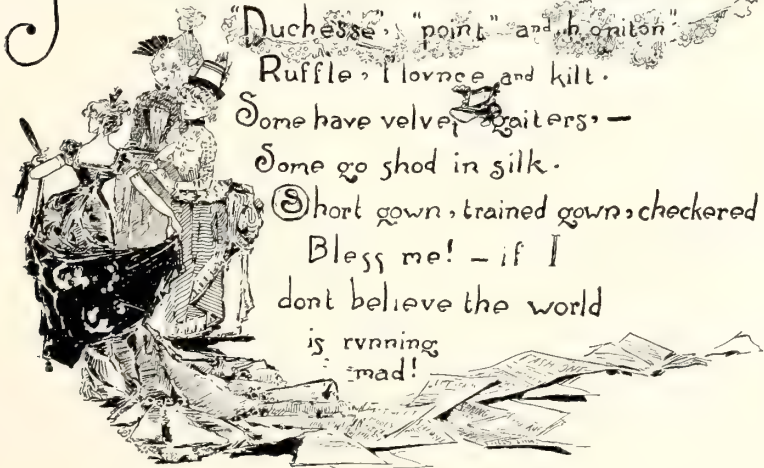 "Duchesse", "point" and honiton"
Ruffle, flovnce and kilt.
Some have velvet gaiters, —
Some go shod in silk.
Short gown, trained gown, checkered
Bless me! — if I
dont believe the world
is rvnning
mad!